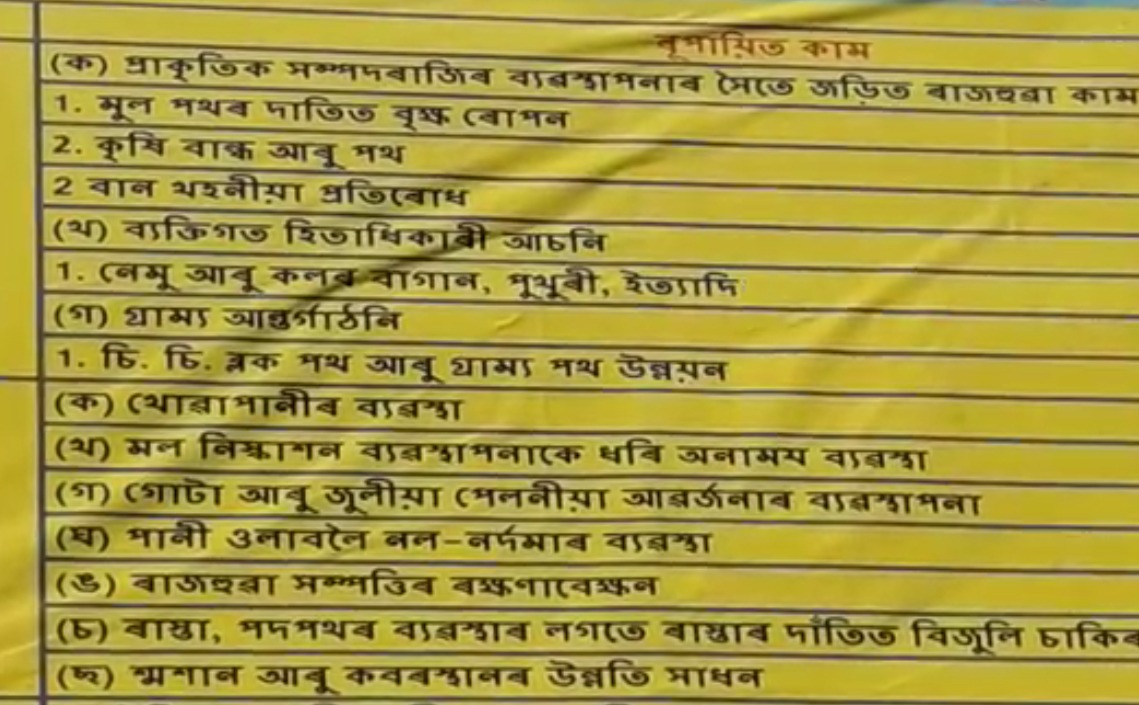 ৰূপায়িত কাম
(ক) প্ৰাকৃতিক সম্পদৰাজিৰ ব্যৱস্থাপনাৰ সৈতে জড়িত ৰাজহুৱা কাম
1. মুল পথৰ দাতিত বৃক্ষ ৰোপন
2. কৃষি বান্ধ আৰু পথ
2 বান খহনীয়া প্ৰতিৰোধ
(খ) ব্যক্তিগত হিতাধিকাৰী আচনি
1. নেমু আৰু কলৰ বাগান, পুখুৰী, ইত্যাদি
(গ) গ্ৰাম্য আন্তৰ্গাঠনি
1. চি. চি. ব্লক পথ আৰু গ্ৰাম্য পথ উন্নয়ন
(ক) খোৱাপানীৰ ব্যৱস্থা
(খ) মল নিস্কাশন ব্যৱস্থাপনাকে ধৰি অনাময ব্যৱস্থা
(গ) গোটা আৰু জুলীয়া পেলনীয়া আৱৰ্জনাৰ ব্যৱস্থাপনা
(ঘ) পানী ওলাবলৈ নল-নৰ্দমাৰ ব্যৱস্থা
(ঙ) ৰাজহুৱা সম্পত্তিৰ ৰক্ষণাবেক্ষন
(চ) ৰাস্তা, পদপথৰ ব্যৱস্থাৰ লগতে ৰাস্তাৰ দাঁতিত বিজুলি চাকিৰ
(ছ) শ্মশান আৰু কবৰস্থানৰ উন্নতি সাধন